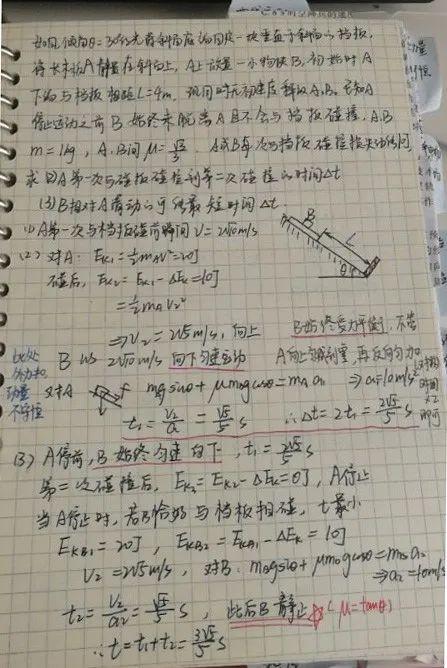 如图,倾角θ=30°的光滑斜面底端固定一块垂直于斜面的挡板,
将长木板A静置在斜面上,A上放置一小物块B,初始时A
下端与挡板相距L=4m,现同时无初速度释放A、B。已知A
停止运动之前B始终未脱离A且不会与挡板碰撞,A、B
m=1kg,A、B间μ=√3/3,A或B与挡板每次碰撞损失动能
求(2)A第一次与挡板碰撞到第二次碰撞的时间Δt
(3)B相对A滑动的可能最短时间Δt.
(1) A第一次与挡板碰前瞬间 V=2√10m/s
(2) 对A: EK1=½mAV²=20J
碰后, EK2=EK1-ΔEK=10J
=½mAV2²
⇒V2=2√5m/s, 向上
B始终受力平衡,
B以2√10m/s向下匀速运动
A向上减到零再反向加
此处
动量
不守恒
对A
mAgsinθ+μmBgcosθ=mAa1 ⇒a1=10m/s²
t1=V2/a=√5/5 s ∴Δt=2t1=2√5/5 s
时间
×2
即可
(3) A停前,B始终匀速向下, t1=2√5/5 s
第二次碰撞后, EK3=EK2-ΔEK=0J, A停止
当A停止时,若B恰好与挡板相碰, t最小
EKB1=20J, EKB2=EKB1-ΔEK=10J
V2=2√5m/s, 对B: mBgsinθ+μmBgcosθ=mBa2
⇒a2=10m/s²
t2=V2/a2=√5/5 s, 此后B静止☆(μ=tanθ)
∴t=t1+t2=3√5/5 s
B
L
A
θ
f